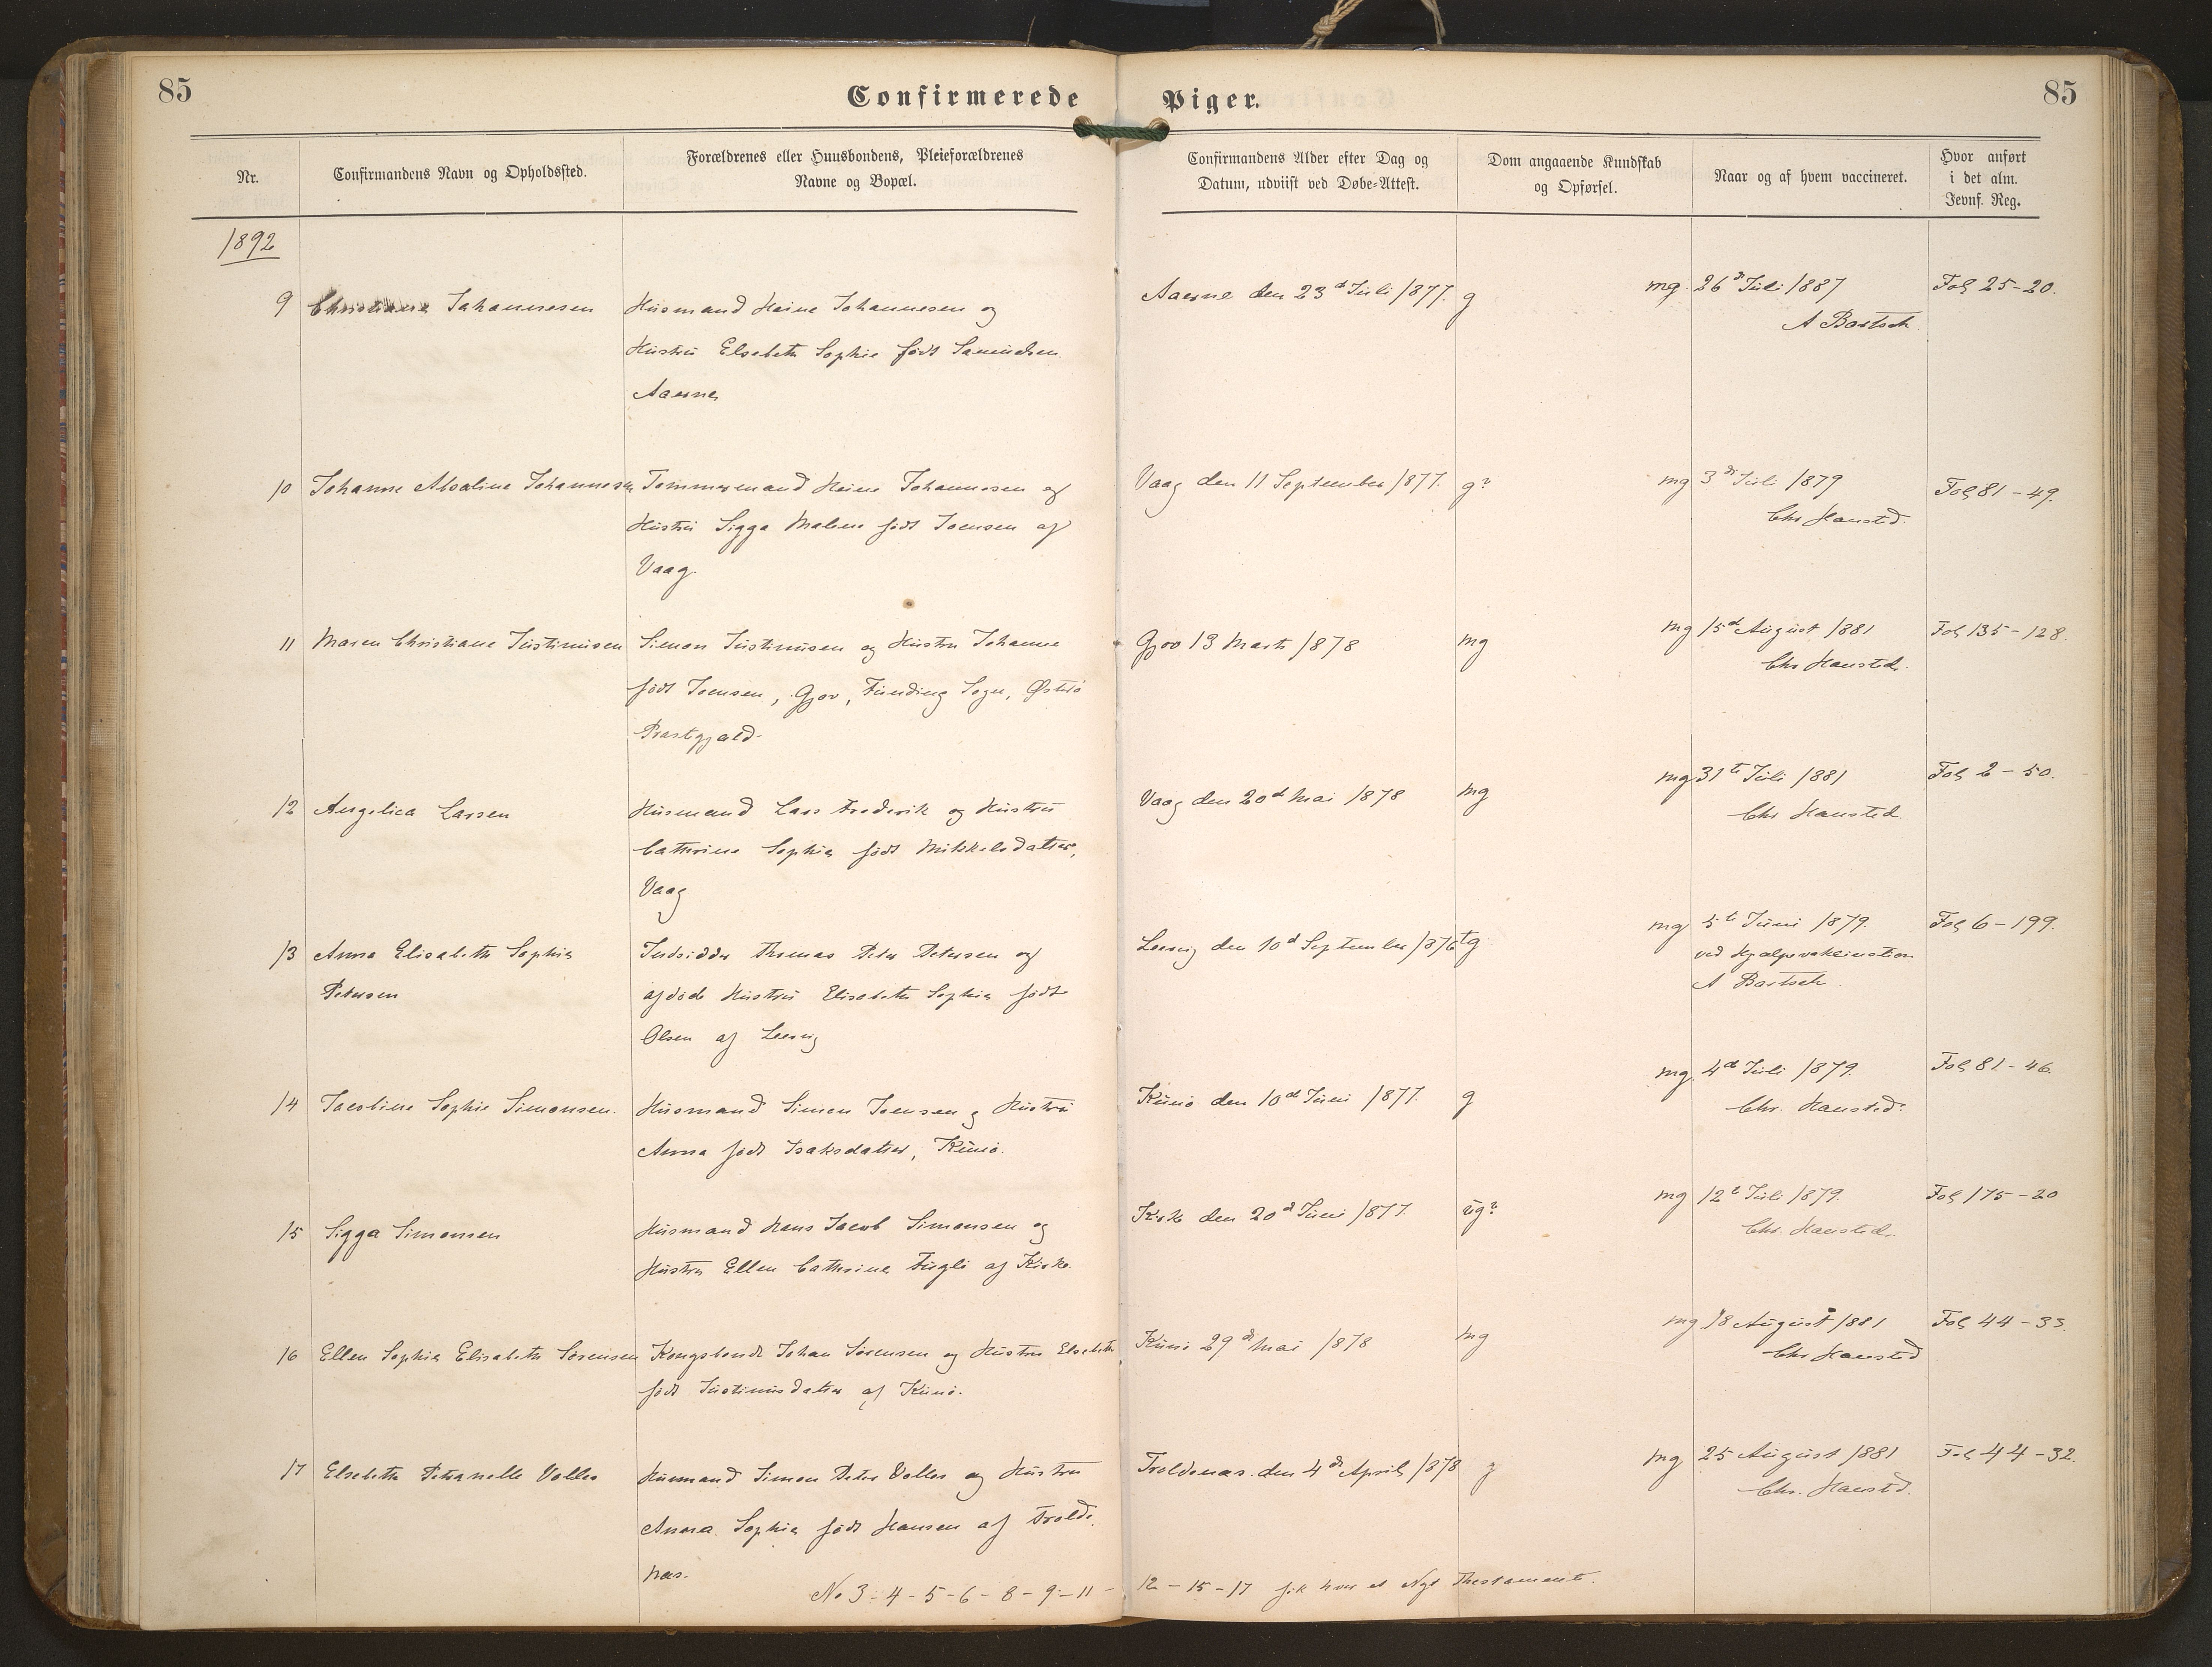 85
Confirmerede Piger.
85
Nr.
Confirmandens Navn og Opholdssted.
Forældrenes eller Huusbondens, Pleieforældrenes
Navne og Bopæl.
Confirmandens Alder efter Dag og
Datum, udviist ved Døbe-Attest.
Dom angaaende Kundskab
og Opførsel.
Naar og af hvem vaccineret.
Hvor anført
i det alm.
Jevnf. Reg.
1892
9
Christiane Johannesen
Husmand Heine Johannesen og
Hustru Elsebeth Sophie født Samuelsen
Aaerne
Aaerne den 23d Juli 1877.
g
mg
26de Juli 1887
A Bartsch
Fol 25-20.
10
Johanne Alvaline Johannesen
Tømmermand Heine Johannesen og
Hustru Sigga Malene født Joensen af
Vaag
Vaag den 11 September 1877.
g?
mg
3de Juli 1879
Chr Hansted.
Fol 81-49.
11
Maren Christiane Justinusen
Simon Justinusen og Hustru Johanne
født Joensen, Gjov, Funding Sogn, Østerø
Præstgjæld.
Gjov 13 Marts 1878
mg
mg
15de August 1881
Chr Hansted.
Fol 135-128.
12
Angelica Larsen
Husmand Lars Frederik og Hustru
Cathrine Sophie født Mikkelsdatter,
Vaag
Vaag den 20d Mai 1878
mg
mg
31te Juli 1881
Chr Hansted.
Fol 2-50.
13
Anna Elisabeth Sophie
Petersen
Indsidder Thomas Peter Petersen og
afdøde Hustru Elisabeth Sophie født
Olsen af Leervig
Leervig den 10d September 1876
tg
mg
5te Juni 1879.
ved Hjælpevakcination
A Bartsch
Fol 6-199.
14
Jacobine Sophie Simonsen.
Husmand Simon Joensen og Hustru
Anna født Isaksdatter, Kunø.
Kunø den 10de Juni 1877.
g
mg.
4de Juli 1879.
Chr. Hansted.
Fol 81-46.
15
Sigga Simonsen
Husmand Hans Jacob Simonsen og
Hustru Ellen Cathrine Fugli af Kirke
Kirke den 20d Juni 1877.
ug?
mg
12te Juli 1879.
Chr. Hansted.
Fol 175-20
16
Ellen Sophie Elisabeth Sørensen
Kongsbonde Johan Sørensen og Hustru Elsebeth
født Justinusdatter af Kunø.
Kunø 29de Mai 1878
mg
mg
18 August 1881
Chr Hansted
Fol 44-33.
17
Elsebeth Petranelle Voller
Husmand Simon Peter Voller og Hustru
Anna Sophie født Hansen af Trolde
næs.
Troldenæs den 4de April 1878
g
mg
25 August 1881
Chr. Hansted.
Fol 44-32.
No 3-4-5-6-8-9-11-12-15-17 fik hver et Nyt Thestamente.